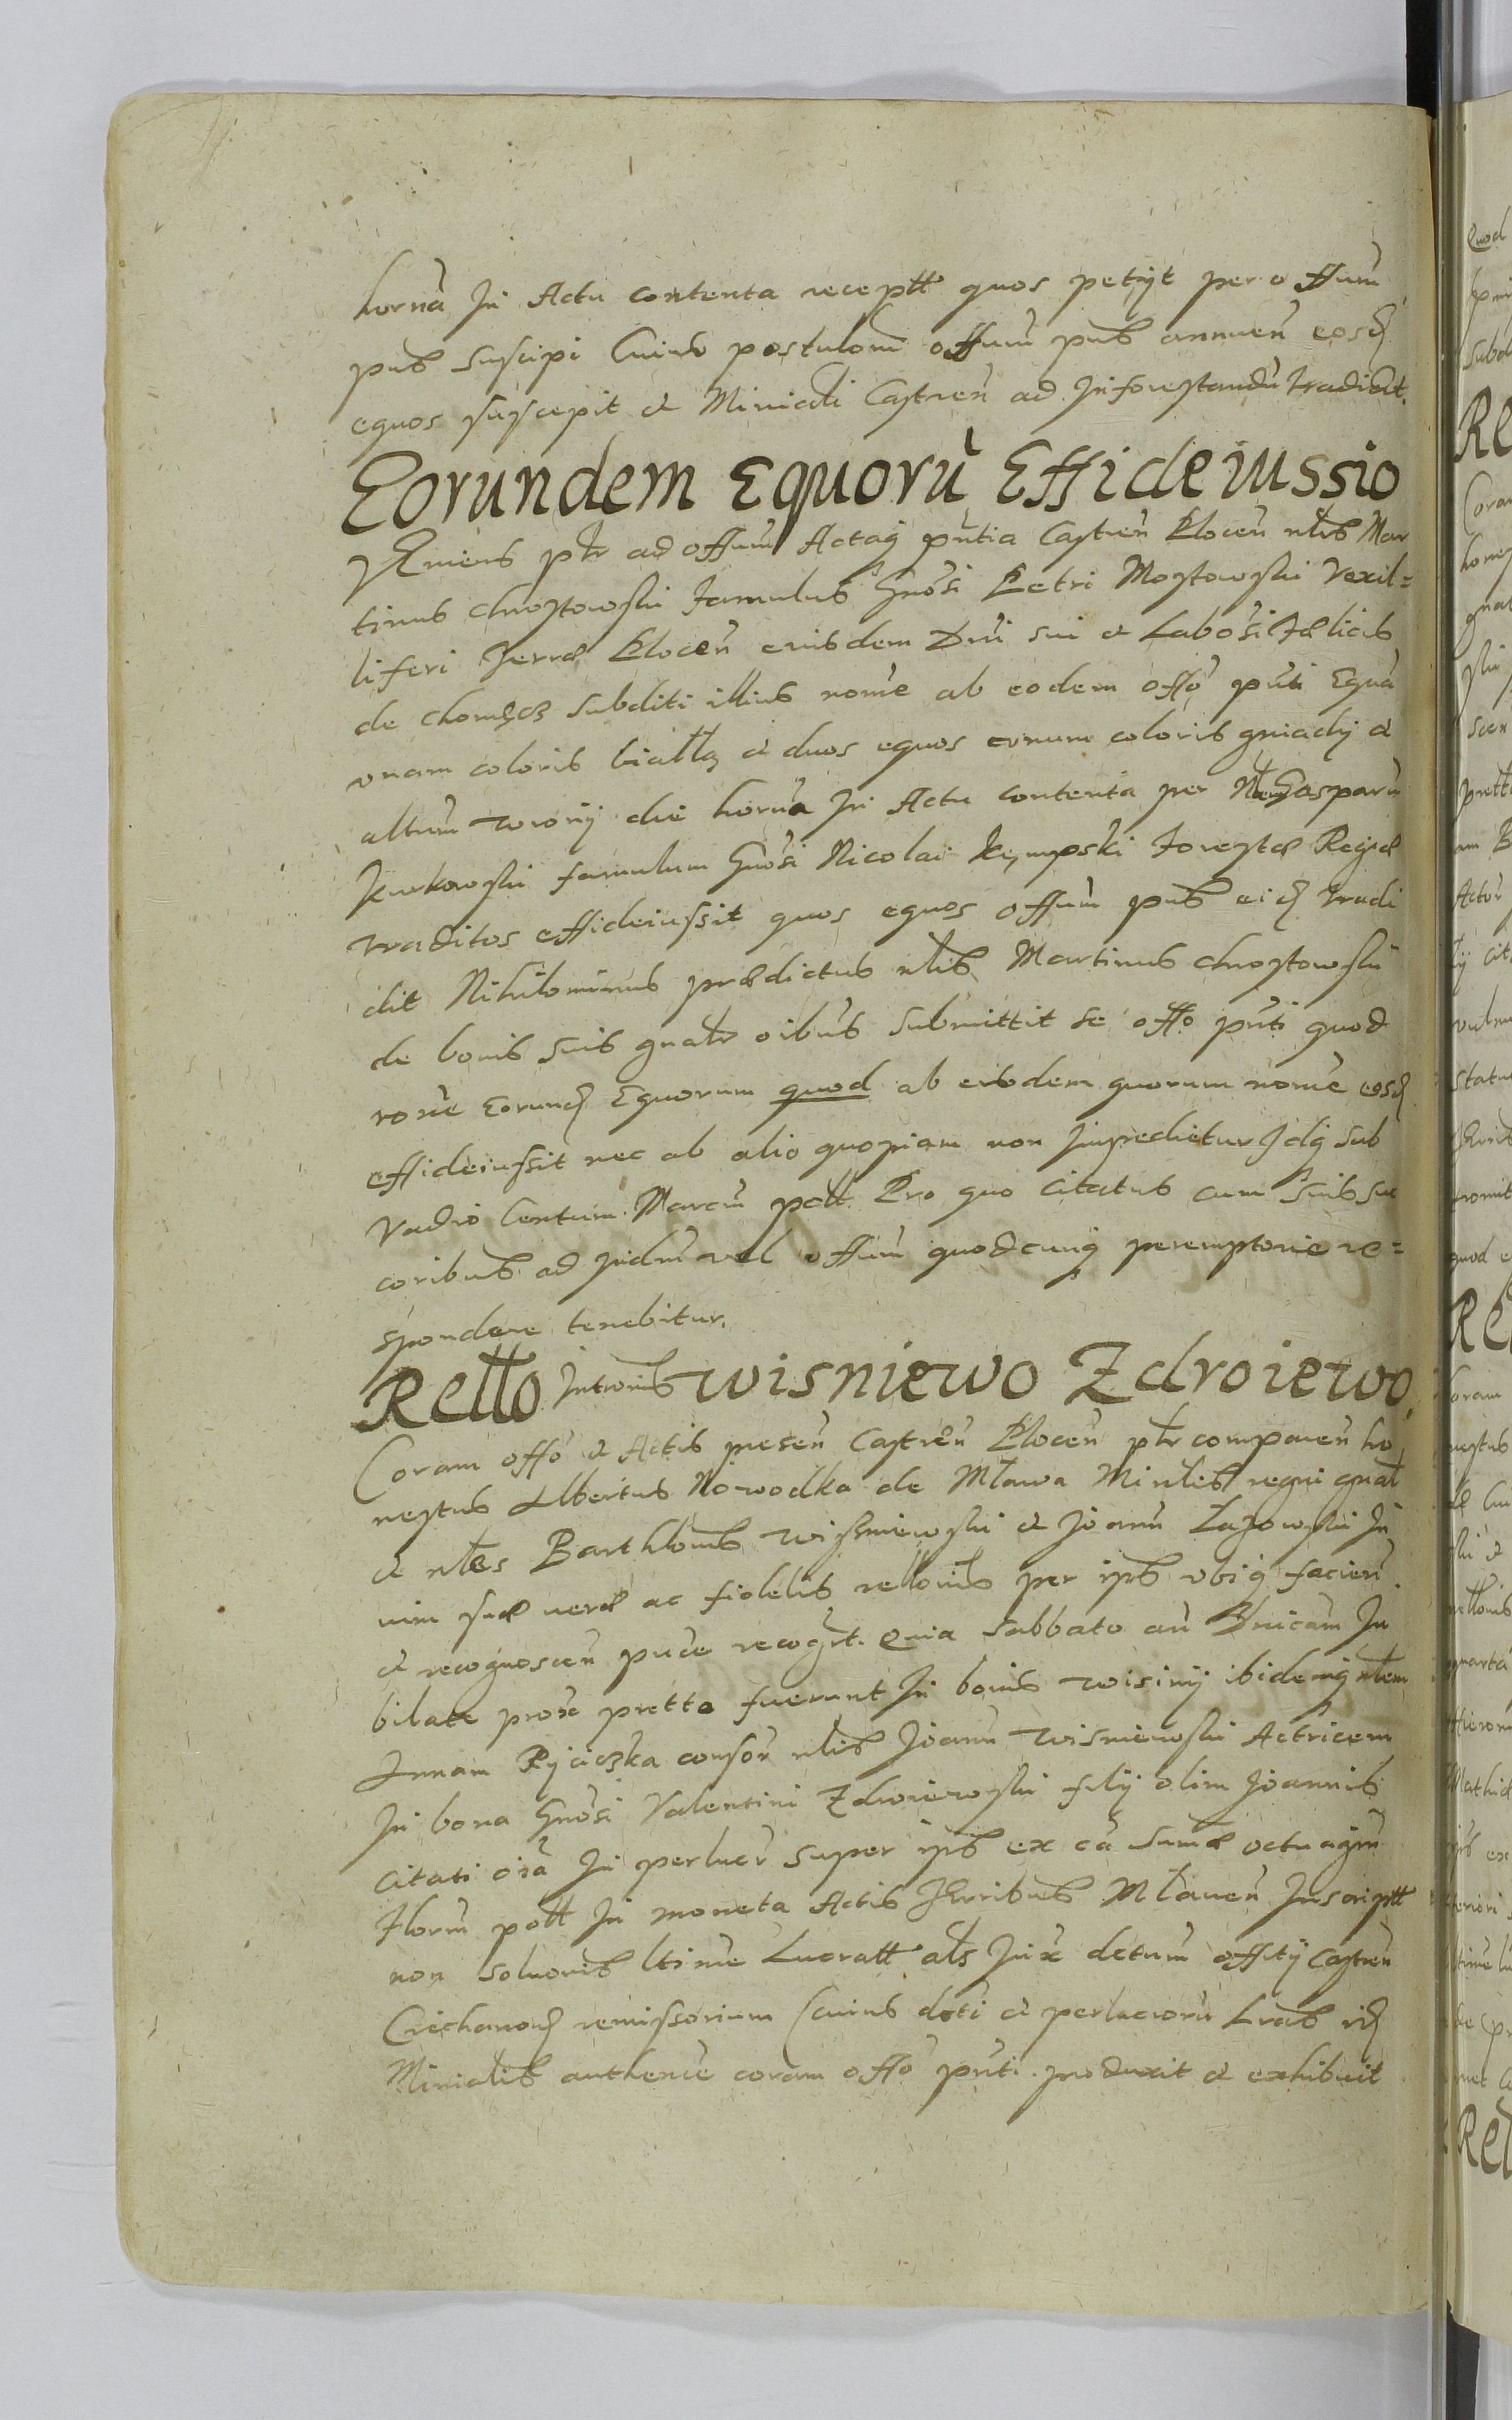 hornã In Actu contenta receptt quos petijt per offum
pns suscipi Cuius postulom offum pns annuen eosd
equos suscepit et Miniali Castren ad Inforestandũ tradidit.
Eorundem Equorũ Effideiussio
Veniens ptr ad offum Actaq pñtia Castren Plocen nlis Mar
tinus Chrostowski famulus Gnosi Petri Mostowski Vexil=
liferi Terræ Plocen eiusdem Dni sui et Labosi Felicis
de subditi illius nomine ab eodem offo pñti Equã
vnam coloris et duos equos vnum coloris gniady et
altum wrony die hornã In Actu contenta per Gasparũ
famulum Gnosi Nicolai Kempski Forestæ Regiæ
traditos effideiussit quos equos offum pns eid tradi
dit Nihilominus prædictus nlis Martinus Chrostowski
de bonis suis gnalr oibus submittit se offo pñti quod
rone Eorund Equorum quod ab eisdem quorum nomine eosd
effideiussit nec ab alio quopiam non Impedietur Idq sub
Vadio Centum Marcũ poll Pro quo citatus cum suis suc
coribus ad Judm vel offum quodcunq peremptorie re=
spondere tenebitur.
Rello Intronis Wisniewo Zdroiewo
Coram offo et Actis presen Castren Plocen ptr comparen ho
nestus Albertus Nowodka de Mława Minlis regni gnal
et nles Barthlomeus Wisniewski et Joann Łazowski In
vim suæ veræ ac fidelis rellonis per ipsos vbiq facien
et recognoscen puce recogrt. Quia Sabbato an Dnicam Ju
bilate proxe pretto fuerunt In bonis Wisiny ibidemq nlem
Annam consor nlis Joann Wisniewski Actricem
In bona Gnosi Valentini Zdroiewski filij olim Joannis
citati oia In perlucr super ipso ex cã summæ octuagin
Florm poll In moneta Actis Trribus Mlauen Inscriptt
non solutionis ltime Lucratt als Juxt detum offity Castren
Ciechanon remissorium (cuius deti et perlucroru Lras id
Minialis authence coram offo pñti produxit et exhibuit